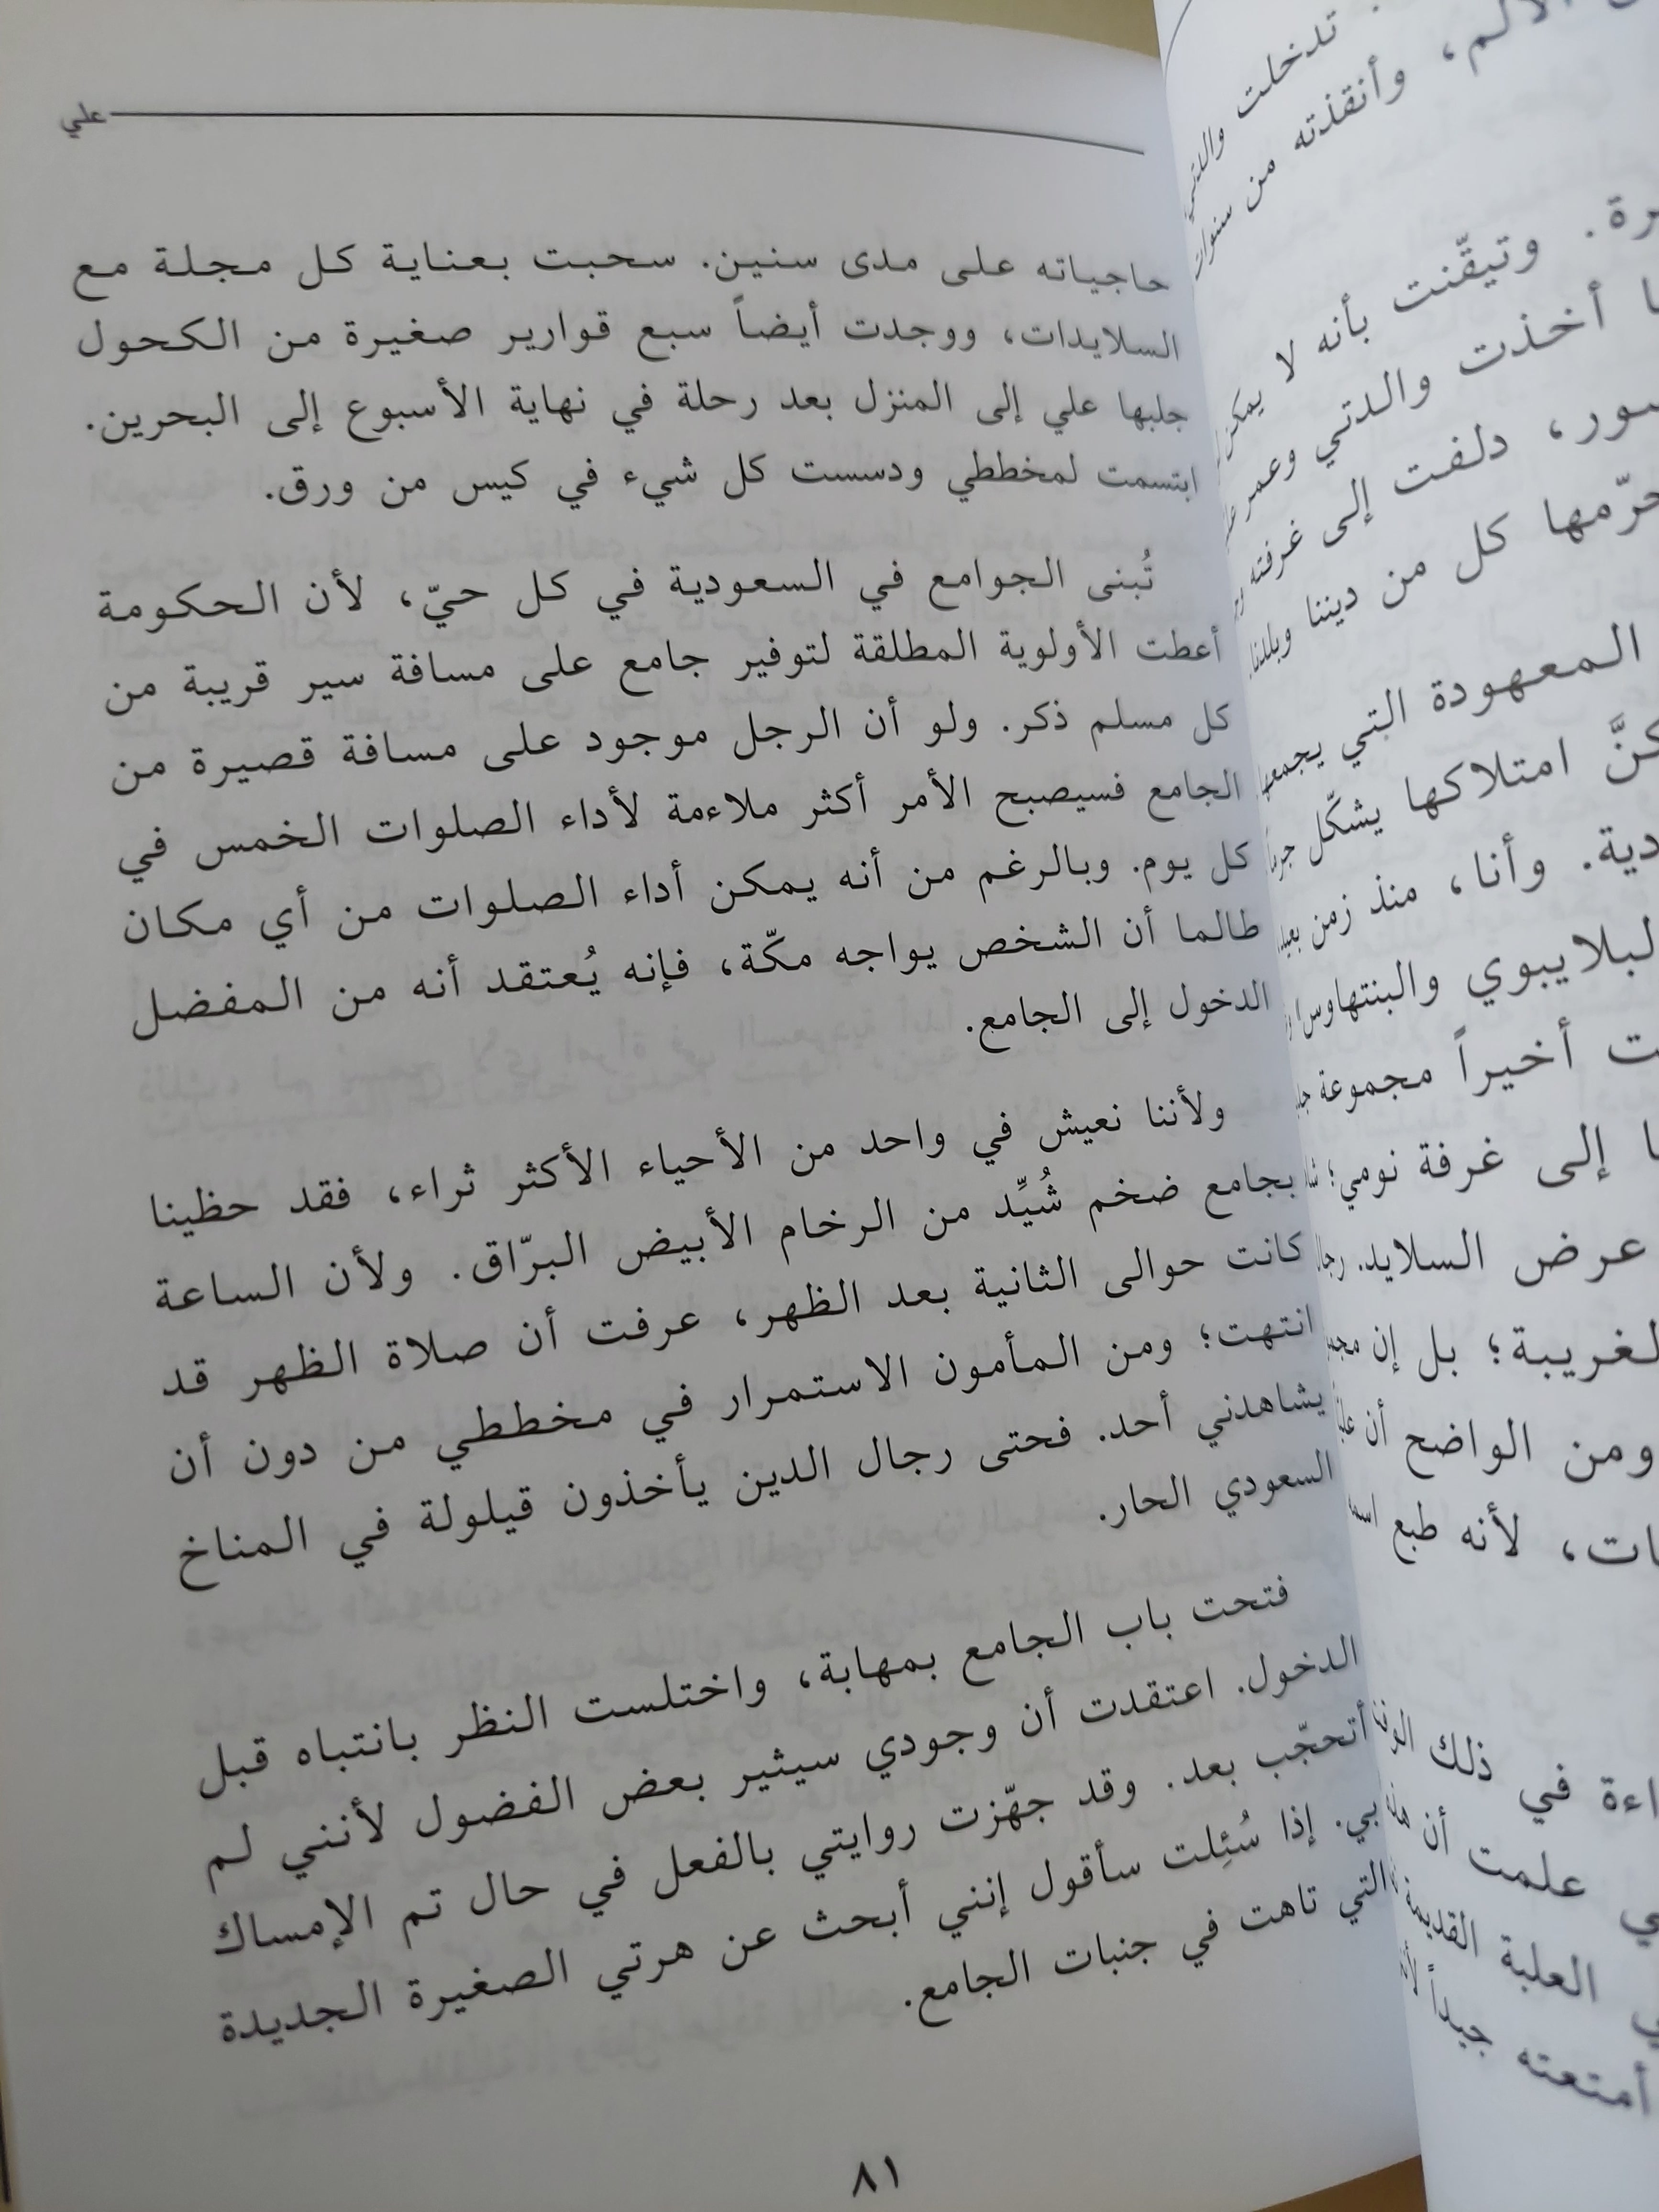 علي
حاجياته على مدى سنين. سحبت بعناية كل مجلة مع
السلايدات، ووجدت أيضاً سبع قوارير صغيرة من الكحول
جلبها علي إلى المنزل بعد رحلة في نهاية الأسبوع إلى البحرين.
ابتسمت لمخططي ودسست كل شيء في كيس من ورق.
تُبنى الجوامع في السعودية في كل حيّ، لأن الحكومة
أعطت الأولوية المطلقة لتوفير جامع على مسافة سير قريبة من
كل مسلم ذكر. ولو أن الرجل موجود على مسافة قصيرة من
الجامع فسيصبح الأمر أكثر ملاءمة لأداء الصلوات الخمس في
كل يوم. وبالرغم من أنه يمكن أداء الصلوات من أي مكان
طالما أن الشخص يواجه مكّة، فإنه يُعتقد أنه من المفضل
الدخول إلى الجامع.
ولأننا نعيش في واحد من الأحياء الأكثر ثراء، فقد حظينا
بجامع ضخم شُيِّد من الرخام الأبيض البرّاق. ولأن الساعة
كانت حوالى الثانية بعد الظهر، عرفت أن صلاة الظهر قد
انتهت؛ ومن المأمون الاستمرار في مخططي من دون أن
يشاهدني أحد. فحتى رجال الدين يأخذون قيلولة في المناخ
السعودي الحار.
فتحت باب الجامع بمهابة، واختلست النظر بانتباه قبل
الدخول. اعتقدت أن وجودي سيثير بعض الفضول لأنني لم
أتحجّب بعد. وقد جهّزت روايتي بالفعل في حال تم الإمساك
بي. إذا سُئِلت سأقول إنني أبحث عن هرتي الصغيرة الجديدة
التي تاهت في جنبات الجامع.
٨١
تدخلت والدتي
وأنقذته من سنوات
وتيقّنت بأنه لا يمكن
أخذت والدتي وعمر
دلفت إلى غرفته
كل من ديننا وبلدنا
المعهودة التي يجمعها
امتلاكها يشكّل
وأنا، منذ زمن بعيد
والبنتهاوس
أخيراً مجموعة
إلى غرفة نومي؛
عرض السلايد.
بل إن
ومن الواضح أن
لأنه طبع
في ذلك
علمت أن
العلبة القديمة
أمتعته جيداً